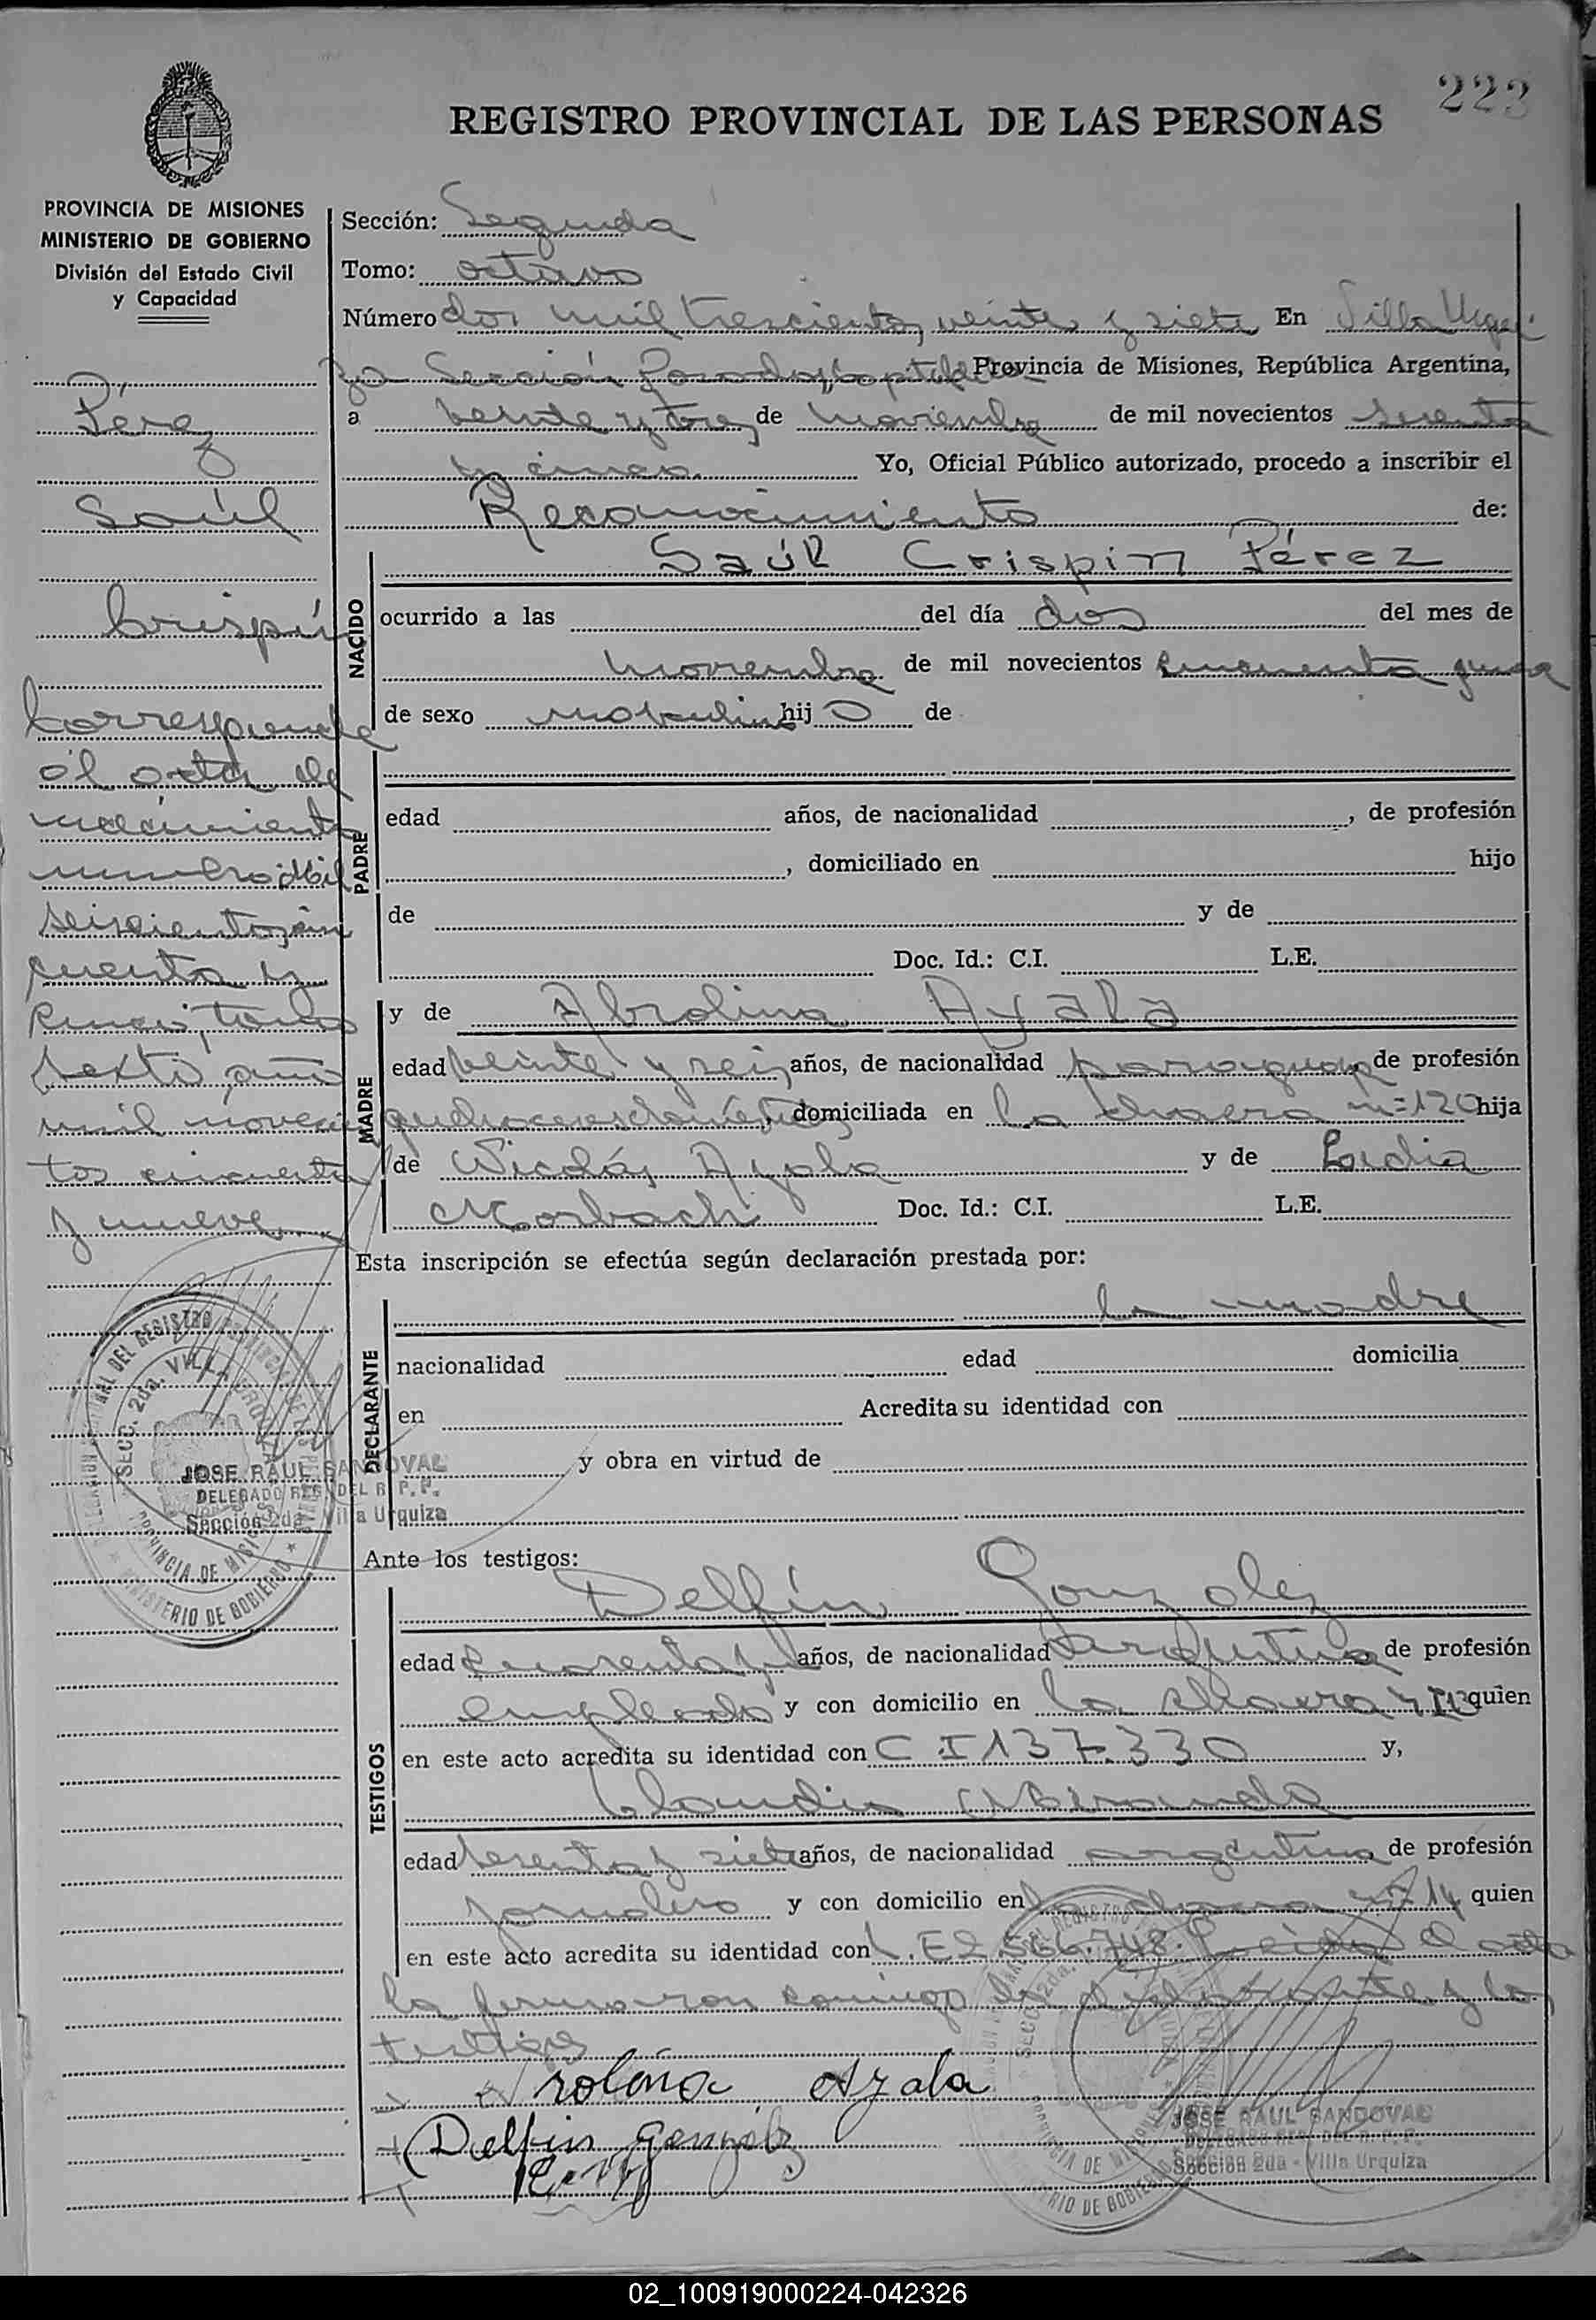 223
REGISTRO PROVINCIAL DE LAS PERSONAS
PROVINCIA DE MISIONES
MINISTERIO DE GOBIERNO
División del Estado Civil
y Capacidad
Pérez
Saúl
Crispín
Corresponde
al acta de
nacimiento
numero Mil
seiscientos cin
cuenta y
cinco, tomo
sexto año
mil novecien
tos cincuenta
y nueve
Sección: Segunda
Tomo: octavo
Número dos mil trescientos veinte y siete En Villa Urqui
za Sección Posadas, Capital de la Provincia de Misiones, República Argentina,
a veinte y tres de noviembre de mil novecientos sesenta
y cinco. Yo, Oficial Público autorizado, procedo a inscribir el
Reconocimiento de:
NACIDO
Saúl Crispin Pérez
ocurrido a las del día dos del mes de
noviembre de mil novecientos cincuenta nueve
de sexo masculino hijo de
PADRE
edad años, de nacionalidad , de profesión
, domiciliado en hijo
de y de
Doc. Id.: C.I. L.E.
MADRE
y de Abrolina Ayala
edad veinte y seis años, de nacionalidad paraguaya de profesión
domiciliada en la chacra nº 120 hija
de Nicolás Ayala y de Lidia
Morbach Doc. Id.: C.I. L.E.
Esta inscripción se efectúa según declaración prestada por:
DECLARANTE
la madre
nacionalidad edad domicilia
en Acredita su identidad con
y obra en virtud de
JOSE RAUL SANDOVAL
DELEGADO REG. DEL R. P. P.
Sección 2da Villa Urquiza
Ante los testigos:
TESTIGOS
Delfín Gonzalez
edad cuarenta y años, de nacionalidad argentina de profesión
empleado y con domicilio en la chacra quien
en este acto acredita su identidad con C I 137.330 y,
Claudio Miranda
edad sesenta y siete años, de nacionalidad argentina de profesión
jornalero y con domicilio en la chacra nº 14 quien
en este acto acredita su identidad con L.E 2.566.748. Leida el acta
la firmaron conmigo la declarante y los
testigos
Arolina Ayala
Delfin Gonzalez
JOSE RAUL SANDOVAL
DELEGADO REG. DEL R. P. P.
Sección 2da - Villa Urquiza
02_100919000224-042326